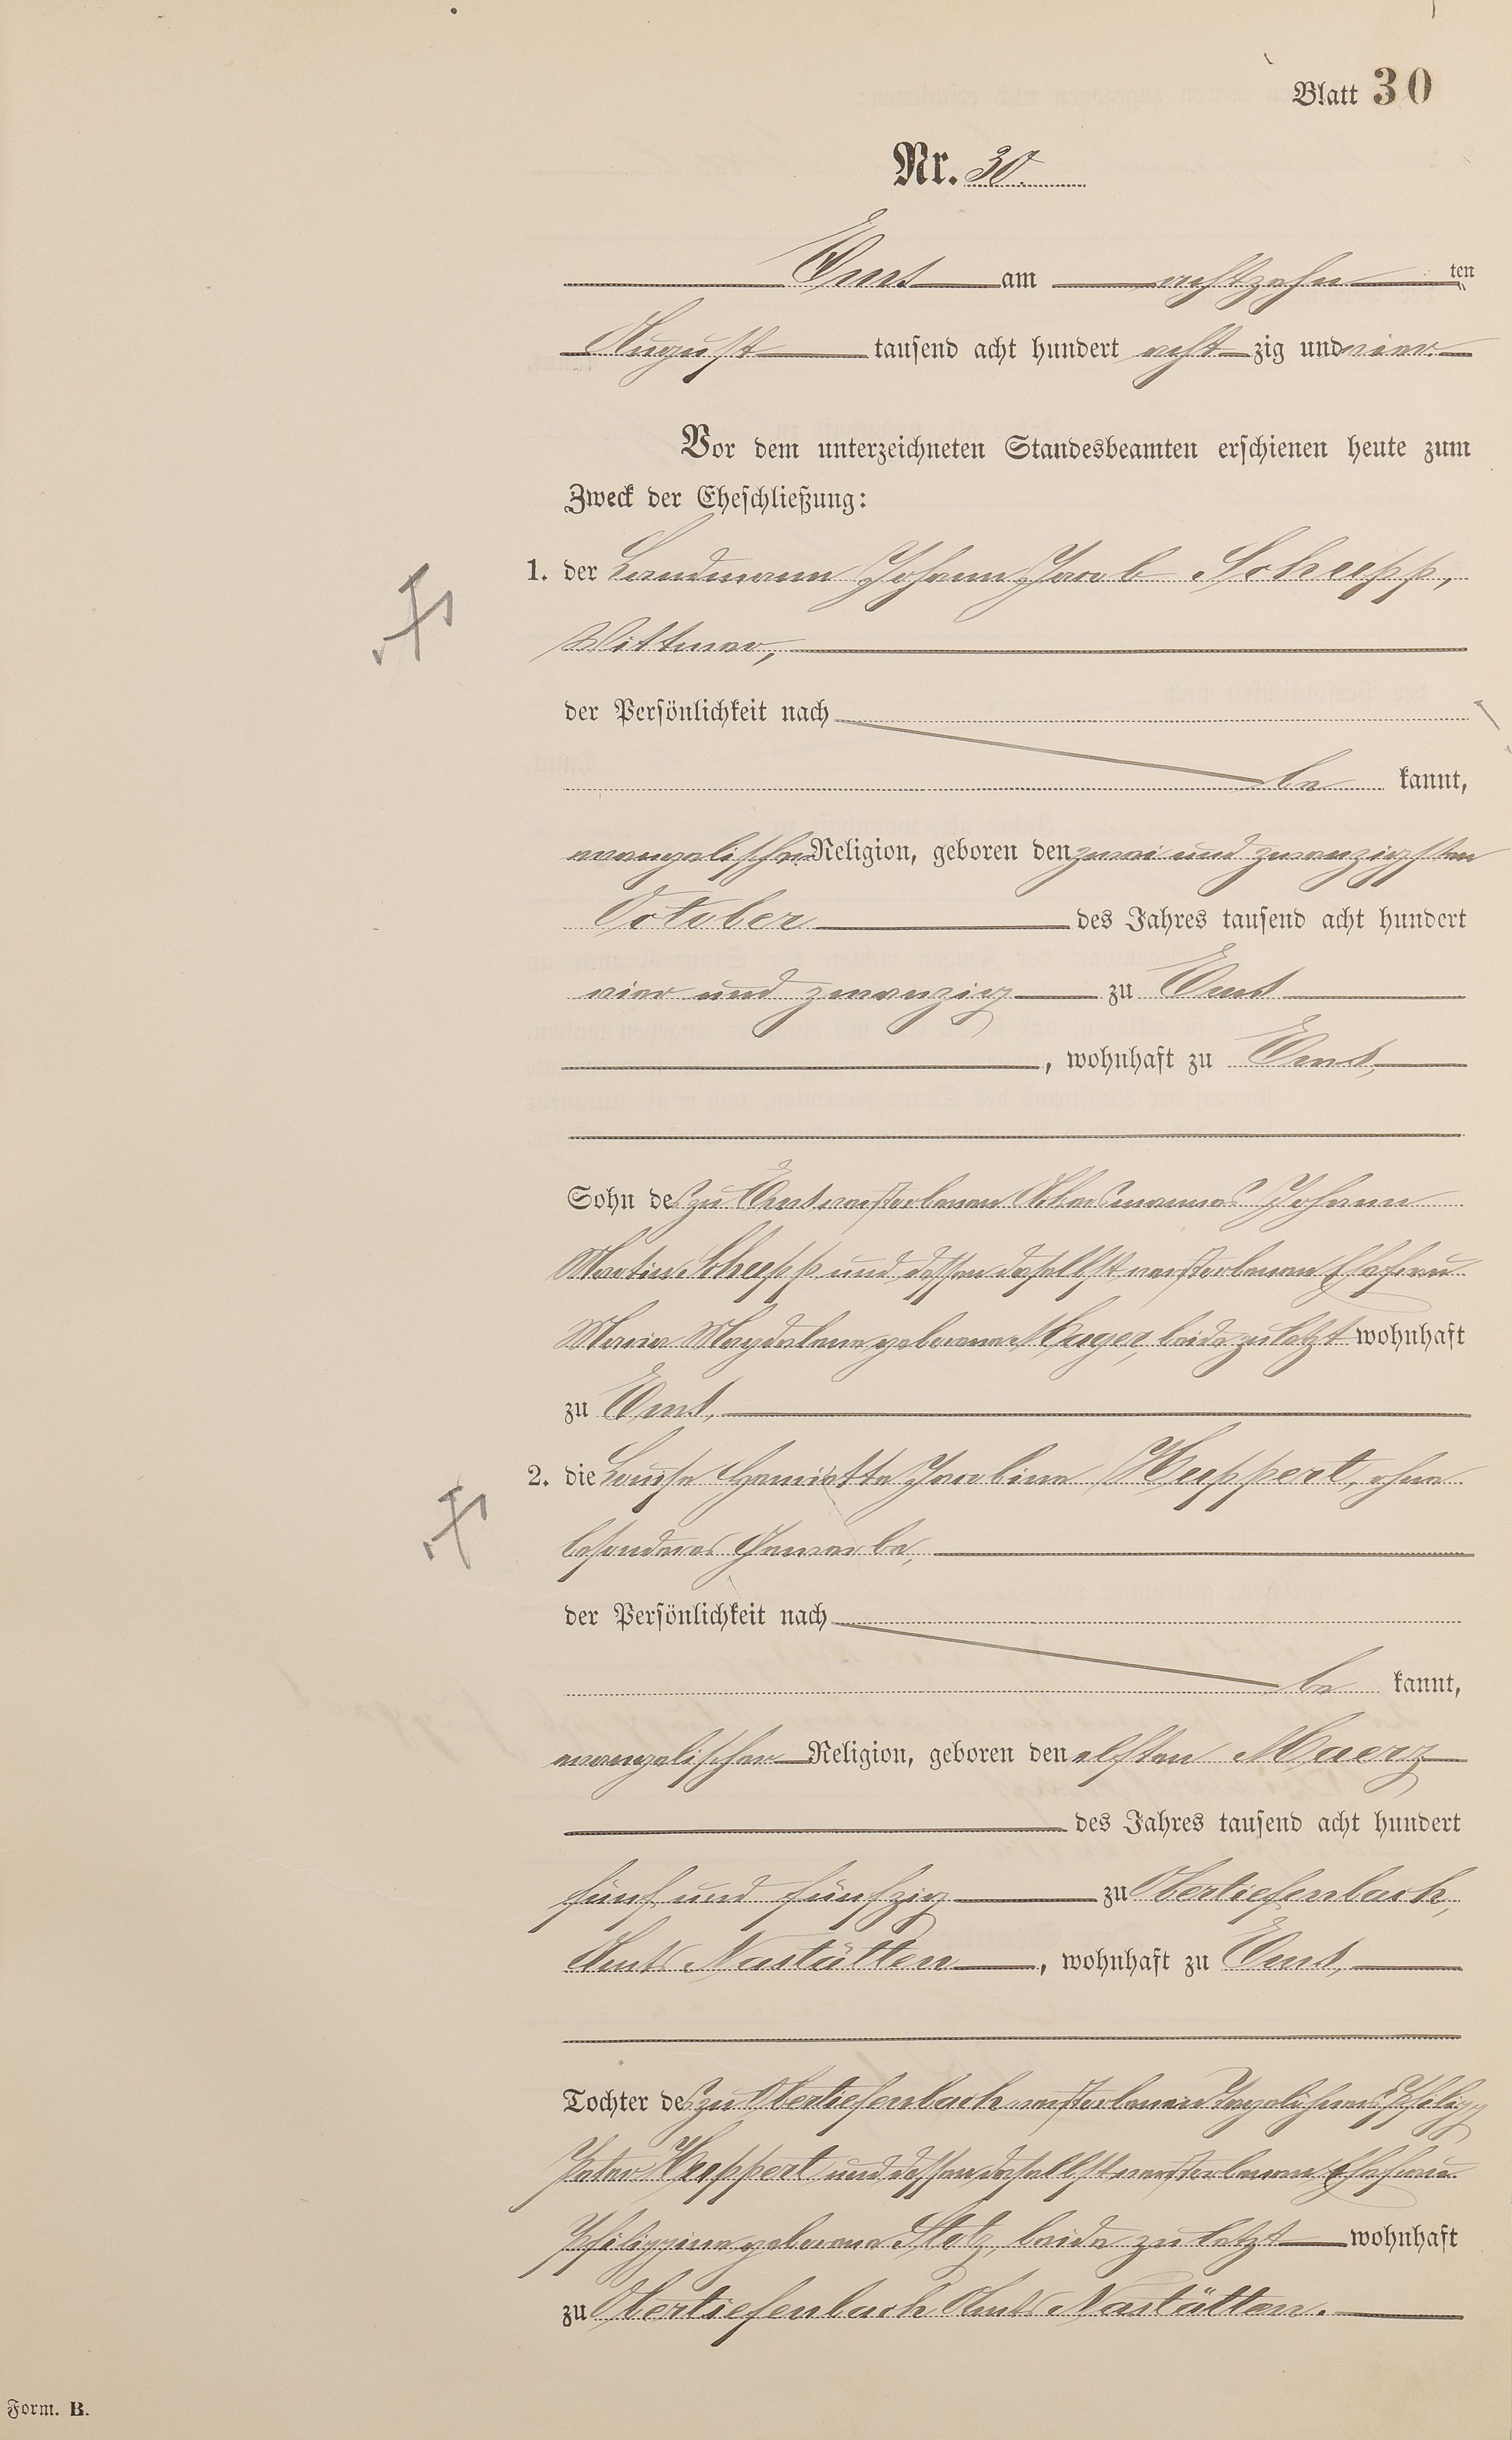 Blatt 30
Nr. 30.
Ems am achtzehn ten
August tausend acht hundert acht zig und vier
Vor dem unterzeichneten Standesbeamten erschienen heute zum
Zweck der Eheschließung:
1. der Landmann Johann Jacob Schupp,
Wittwer,
der Persönlichkeit nach
be kannt,
evangelischer Religion, geboren den zwei und zwanzigsten
October des Jahres tausend acht hundert
vier und zwanzig zu Ems
, wohnhaft zu Ems,
Sohn des zu Ems verstorbenen Ackersmannes Johann
Martin Schupp und dessen daselbst verstorbenen Ehefrau
Maria Magdalena geborene Muger, beide zuletzt wohnhaft
zu Ems,
2. die Louise Henriette Jacobine Huppert, ohne
besonderes Gewerbe,
der Persönlichkeit nach
be kannt,
evangelischer Religion, geboren den elften Maerz
des Jahres tausend acht hundert
fünf und fünfzig zu Obertiefenbach,
Amts Nastätten, wohnhaft zu Ems,
Tochter des zu Obertiefenbach verstorbenen Tagelöhners Philipp
Peter Huppert und dessen daselbst verstorbenen Ehefrau
Philippine geborene Stotz, beide zuletzt wohnhaft
zu Obertiefenbach Amts Nastätten.
Form. B.